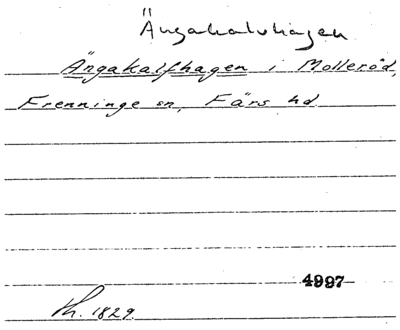 Ängakalvhagen
Ängakalfhagen i Molleröd,
Frenninge sn, Färs hd
4997
Kh. 1829.